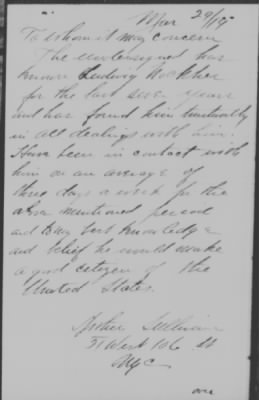 Mar 29/18
To whom it may concern
The undersigned has
known Ludwig
for the last seven years
and has found him
in all dealings with him.
Have been in contact with
him on an average of
three days a week for the
above mentioned period
and to my best knowledge
and belief he would make
a good citizen of the
United States.
Arthur Sullivan
51 West 106 St
NYC
over